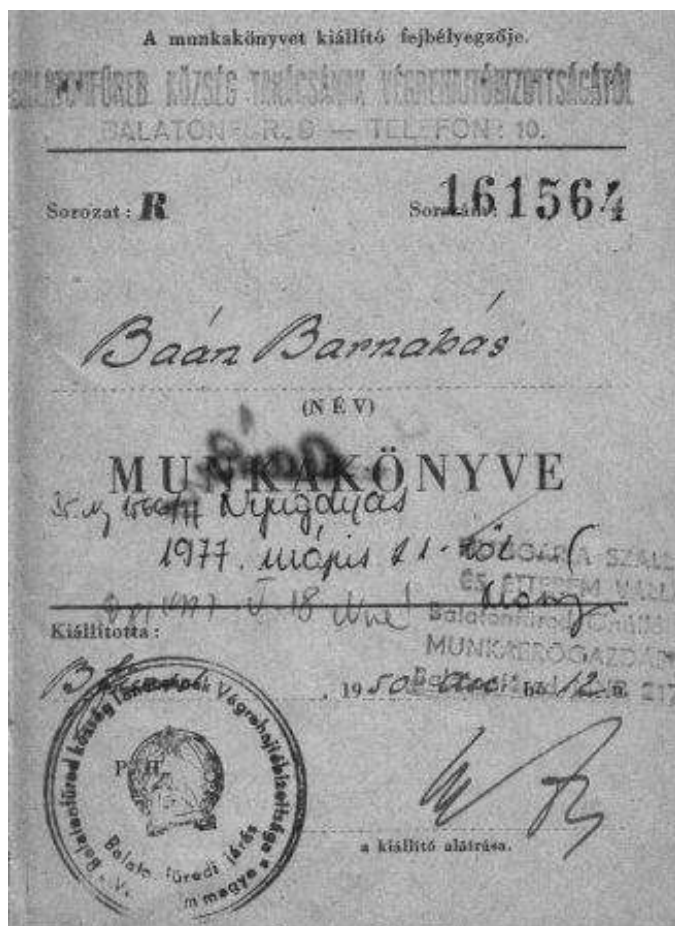 A munkakönyvet kiállító fejbélyegzője.
KÖZSÉG TANÁCSÁNAK VÉGREHAJTÓBIZOTTSÁGÁTÓL
BALATONFÜRED — TELEFON: 10.
Sorozat: R Sorszám: 161564
Baán Barnabás
(NÉV)
MUNKAKÖNYVE
Nyugdíjas
1977. május 21-től
HUNGÁRIA SZÁLL
ÉS ÉTTEREM VÁLL
Balatonfüred
MUNKAERŐGAZD
Kiállította:
1950 dec hó 12 n.
217
P. H.
Balatonfüred község Végrehajtóbizottsága
Balatonfüredi járás
V. m megye
a kiállító aláírása.